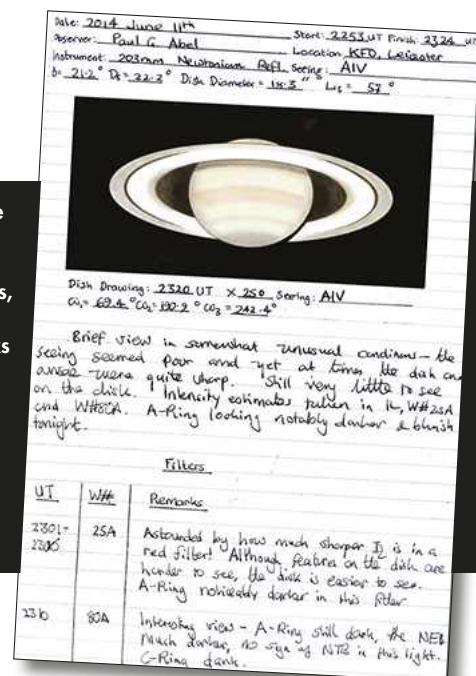 Date: 2014 June 11th Start: 2253 UT Finish: 2324 UT
Observer: Paul G. Abel Location KFO, Leicester
Instrument: 203mm Newtonian Refl. Seeing: AIV
Disk Diameter = 18.3" = 57°
Disk Drawing: 2320 UT × 250 Seeing: AIV
ω₁ = 69.4° ω₂ = ω₃ = 242.4°
Brief view in somewhat unusual conditions - the
seeing seemed poor and yet at times the disk and
ansae were quite sharp. Still very little to see
on the disk. Intensity estimates taken in IL, W#25A
and W#80A. A-Ring looking notably darker & bluish
tonight.
Filters
UT W# Remarks
2301- 25A Astounded by how much sharper is in a
red filter! Although features on the disk are
harder to see, the disk is easier to see.
A-Ring noticeably darker in this filter
80A Interesting view - A-Ring still dark, the NEB
much darker, no sign of in this light.
C-Ring dark.